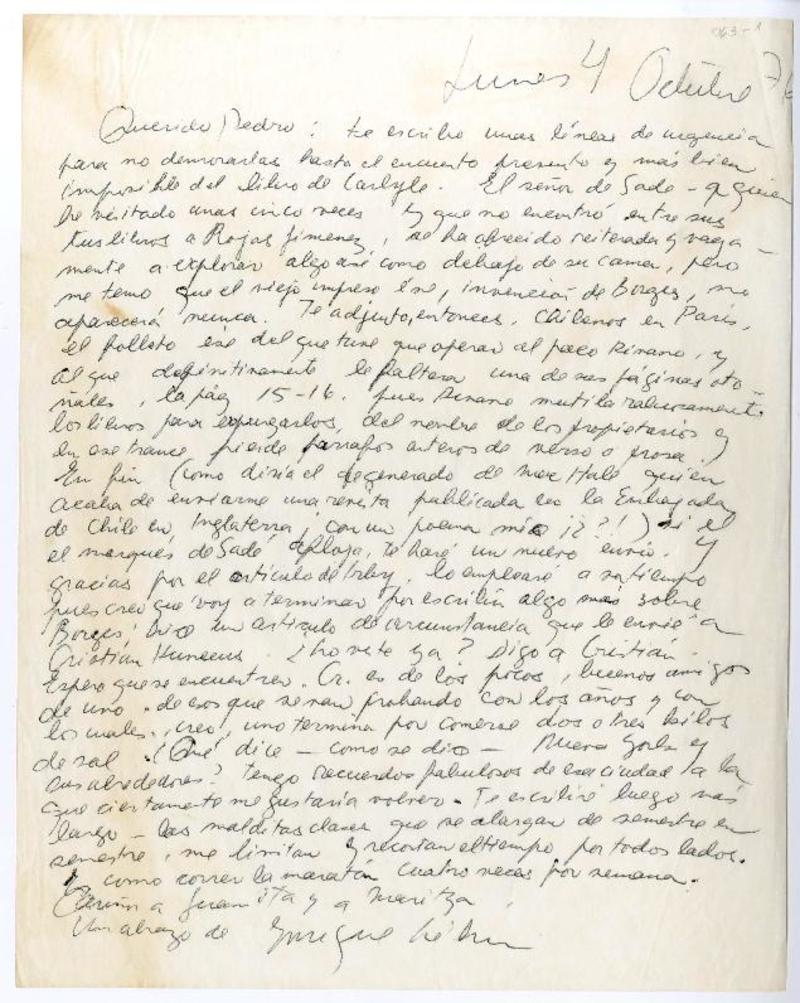 063-1
Lunes 4 Octubre 76
Querido Pedro: te escribo unas líneas de urgencia
para no demorarlas hasta el encuentro presunto y más bien
imposible del libro de Carlyle. El señor de Sade - a quien
he visitado unas cinco veces y que no encontró entre sus
tus libros a Rojas Jimenez, se ha ofrecido reiterada y vaga-
mente a explorar algo así como debajo de su cama, pero
me temo que el viejo impreso ése, invención de Borges, no
aparecerá nunca. Te adjunto, entonces, Chilenos en París,
el folleto ese del que tuve que operar al paco Rivano, y
al que definitivamente le faltara una de sus páginas oto-
ñales, la pág 15-16. pues Rivano mutila rabiosamente
los libros para expurgarlos, del nombre de los propietarios y
en ese trance pierde párrafos enteros de verso o prosa.
En fin (como diría el degenerado de Mac Hale quien
acaba de enviarme una revista publicada por la Embajada
de Chile en Inglaterra ¡con un poema mío ¡¿?!) si el
el marqués de Sade afloja, te haré un nuevo envío. Y
gracias por el artículo de Irby, lo emplearé a su tiempo
pues creo que voy a terminar por escribir algo más sobre
Borges; hice un artículo de circunstancia que le envié a
Cristián Huneeus. ¿Lo viste ya? Digo a Cristián.
Espero que se encuentren. Cr. es de los pocos, buenos amigos
de uno. de esos que se van probando con los años y con
los cuales, creo, uno termina por comerse dos o tres kilos
de sal. ¿Qué dice - como se dice - Nueva York y
sus alrededores? tengo recuerdos fabulosos de esa ciudad a la
que ciertamente me gustaría volver. Te escribiré luego más
largo - las malditas clases que se alargan de semestre en
semestre, me limitan y recortan el tiempo por todos lados.
Es como correr la maratón cuatro veces por semana.
Cariños a Juanita y a Maritza,
Un abrazo de Enrique Lihn